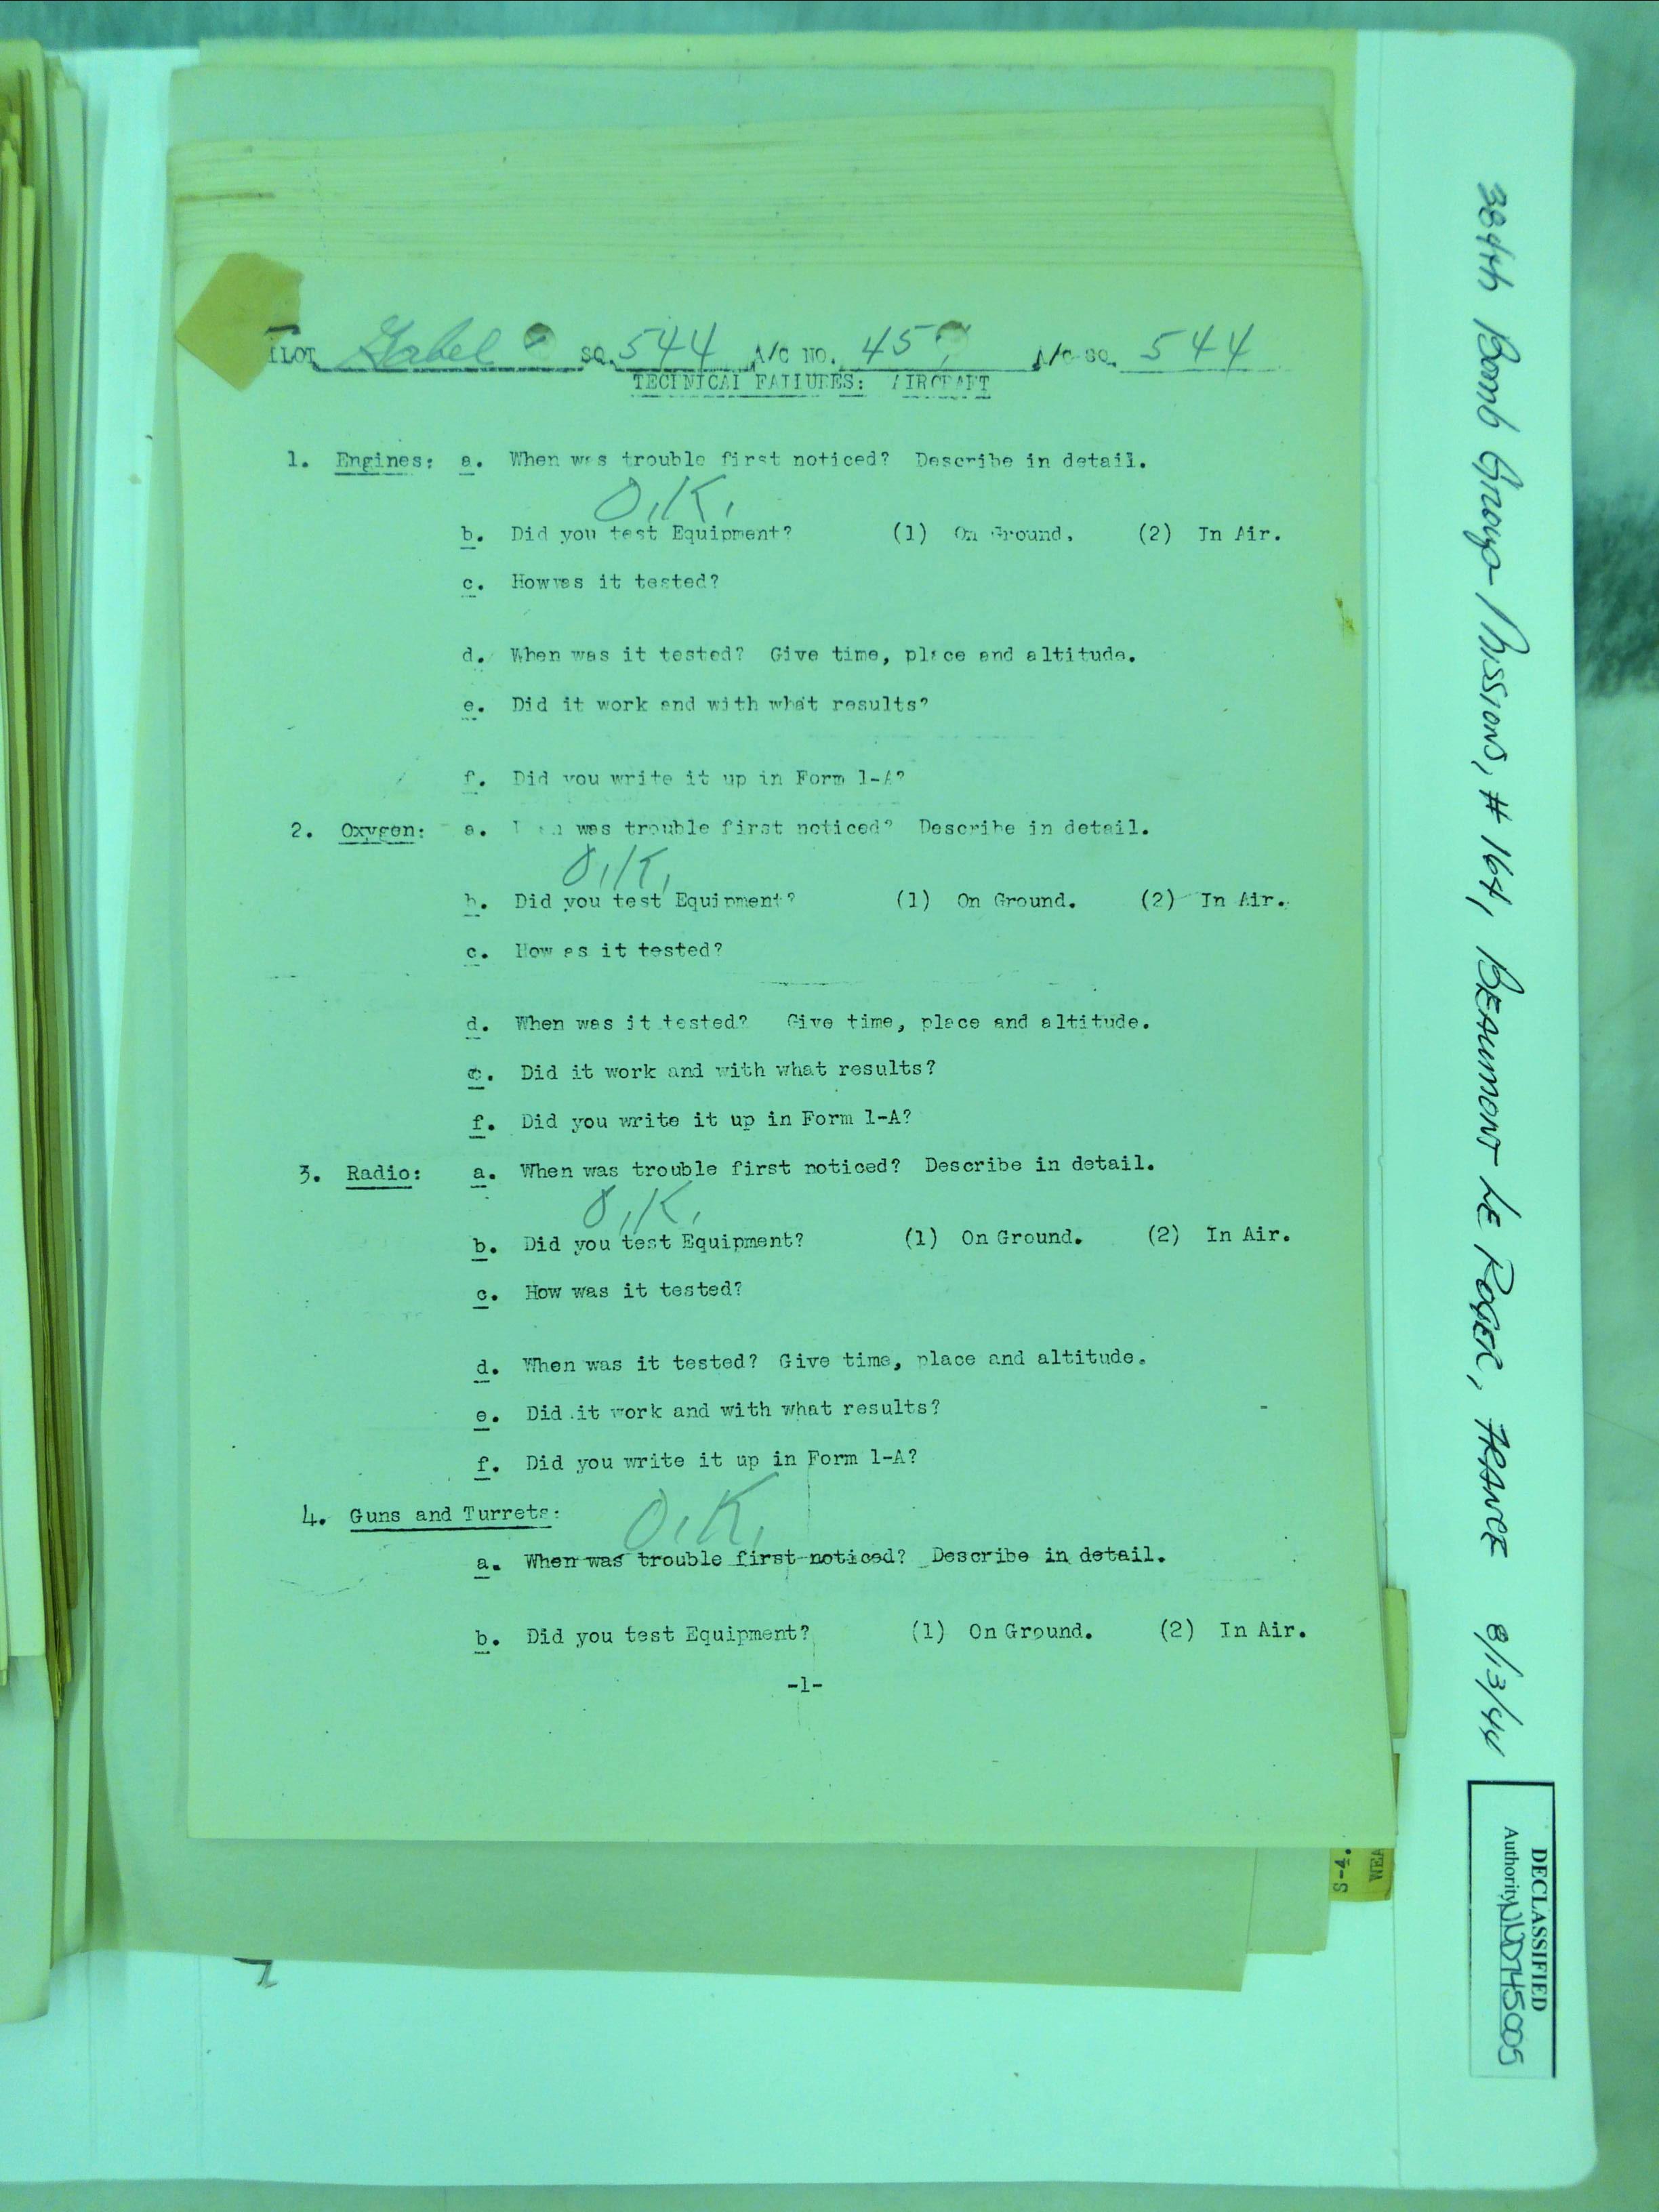 PILOT Gabel SQ. 544 A/C NO. 45 A/C SQ. 544
TECHNICAL FAILURES: AIRCRAFT
1. Engines: a. When was trouble first noticed? Describe in detail.
O.K.
b. Did you test Equipment? (1) On Ground. (2) In Air.
c. How was it tested?
d. When was it tested? Give time, place and altitude.
e. Did it work and with what results?
f. Did you write it up in Form 1-A?
2. Oxygen: a. When was trouble first noticed? Describe in detail.
O.K.
b. Did you test Equipment? (1) On Ground. (2) In Air.
c. How was it tested?
d. When was it tested? Give time, place and altitude.
e. Did it work and with what results?
f. Did you write it up in Form 1-A?
3. Radio: a. When was trouble first noticed? Describe in detail.
O.K.
b. Did you test Equipment? (1) On Ground. (2) In Air.
c. How was it tested?
d. When was it tested? Give time, place and altitude.
e. Did it work and with what results?
f. Did you write it up in Form 1-A?
4. Guns and Turrets: O.K.
a. When was trouble first noticed? Describe in detail.
b. Did you test Equipment? (1) On Ground. (2) In Air.
-1-
S-4.
384th Bomb Group-Mission, # 164, BEAUMONT LE ROGER, FRANCE 8/13/44
DECLASSIFIED
Authority NND745005